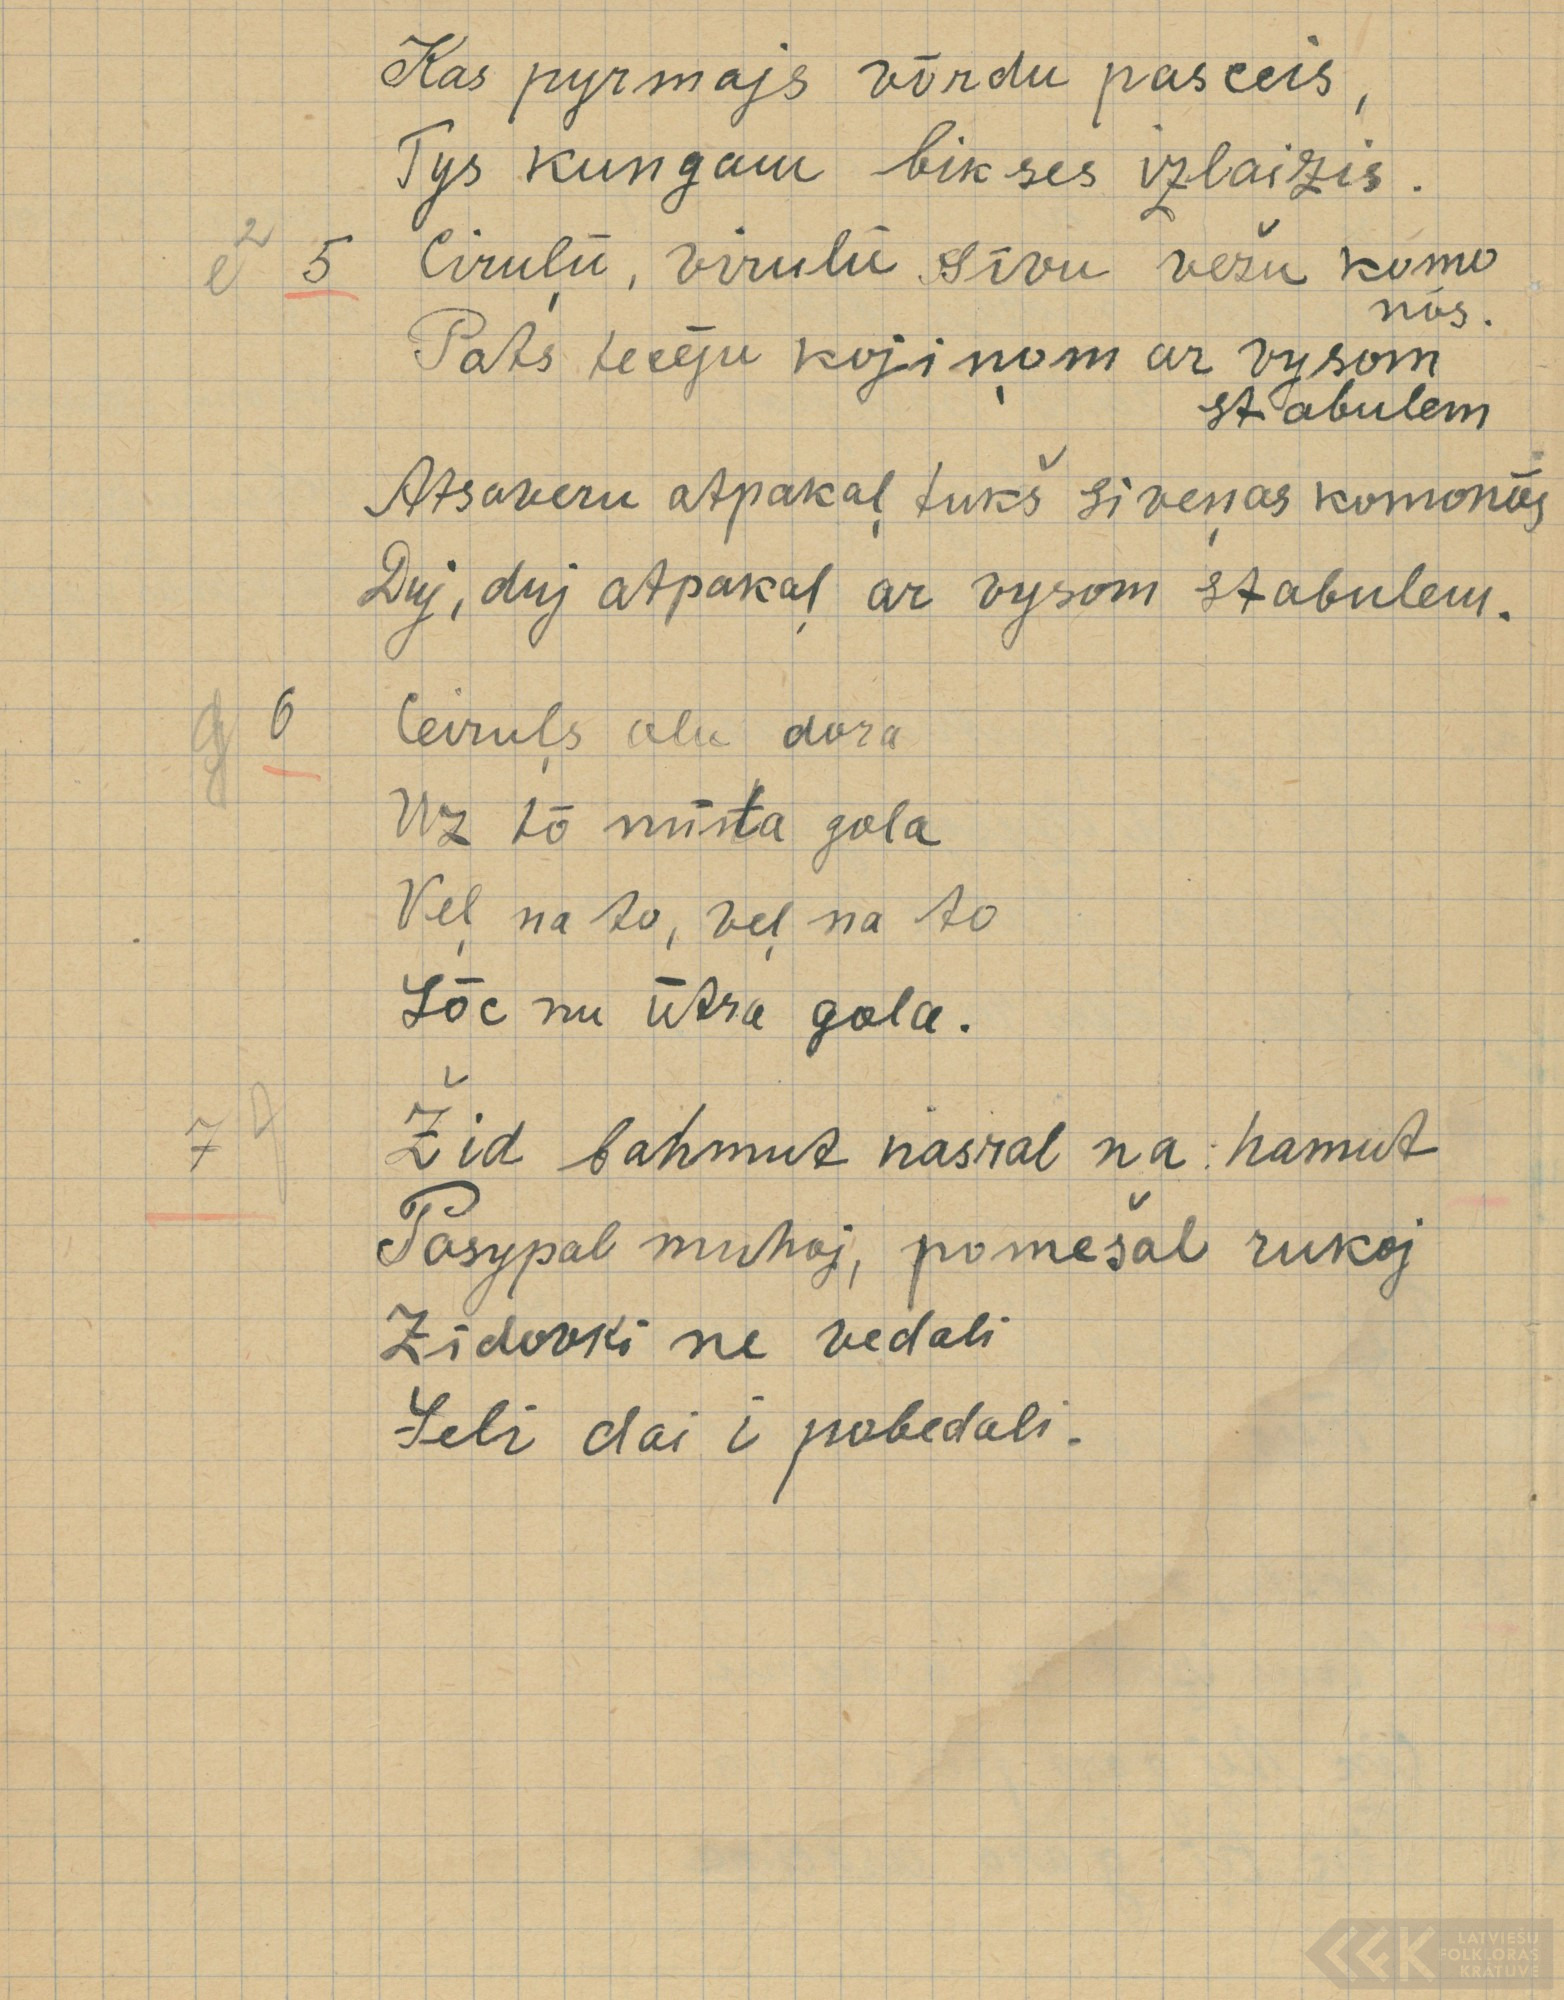 Kas pyrmajs vōrdu pasceis,
Tys kungam bikses izlaizis.
e² 5 Ciruļū, virulū sīvu vežu komo
nōs.
Pats tecēju kojiņom ar vysom
stabulem
Atsaveru atpakaļ tukš siveņas komonōs
Duj, duj atpakaļ ar vysom stabulem.
g 6 Ceiruļs olu dora
Uz tō mīsta gola
Veļ na to, veļ na to
Lōc nu ūtra gola.
7 Žid bahmut nasral na hamut
Posypal muhoj, pomešal rukoj
Zidovki ne vedali
Seli dai i pobedali.
LATVIEŠU
FOLKLORAS
KRĀTUVE